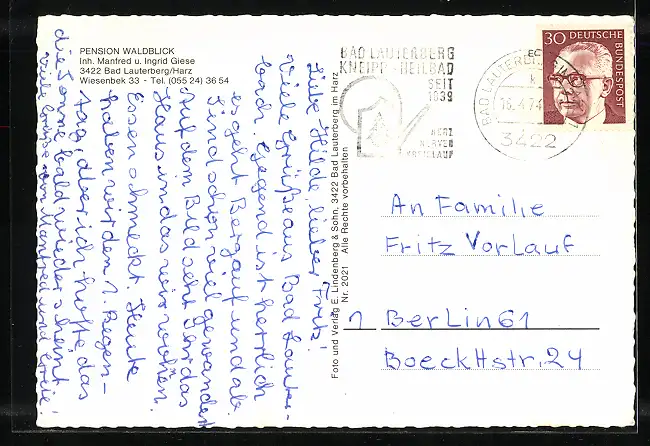 PENSION WALDBLICK
Inh. Manfred u. Ingrid Giese
3422 Bad Lauterberg/Harz
Wiesenbek 33 - Tel. (055 24) 36 54
Liebe Hilde, lieber Fritz!
Viele Grüße aus Bad Lauter-
bach. Gegend ist herrlich
es geht Bergauf und ab
Sind schon viel gewandert
Auf dem Bild seht Ihr das
Haus in das wir wohnen.
Essen schmeckt. Heute
haben wir den 1. Regen-
tag, aber ich hoffe, das
die Sonne bald wieder scheint.
Viele Grüße von Manfred und
Foto und Verlag E. Lindenberg & Sohn, 3422 Bad Lauterberg im Harz
Nr. 2021 Alle Rechte vorbehalten
BAD LAUTERBERG
KNEIPP-HEILBAD
SEIT
1839
HERZ
NERVEN
KREISLAUF
BAD LAUTERBERG IM HARZ
3422
30 DEUTSCHE
BUNDESPOST
An Familie
Fritz Vorlauf
1 Berlin 61
Boeckhstr. 24